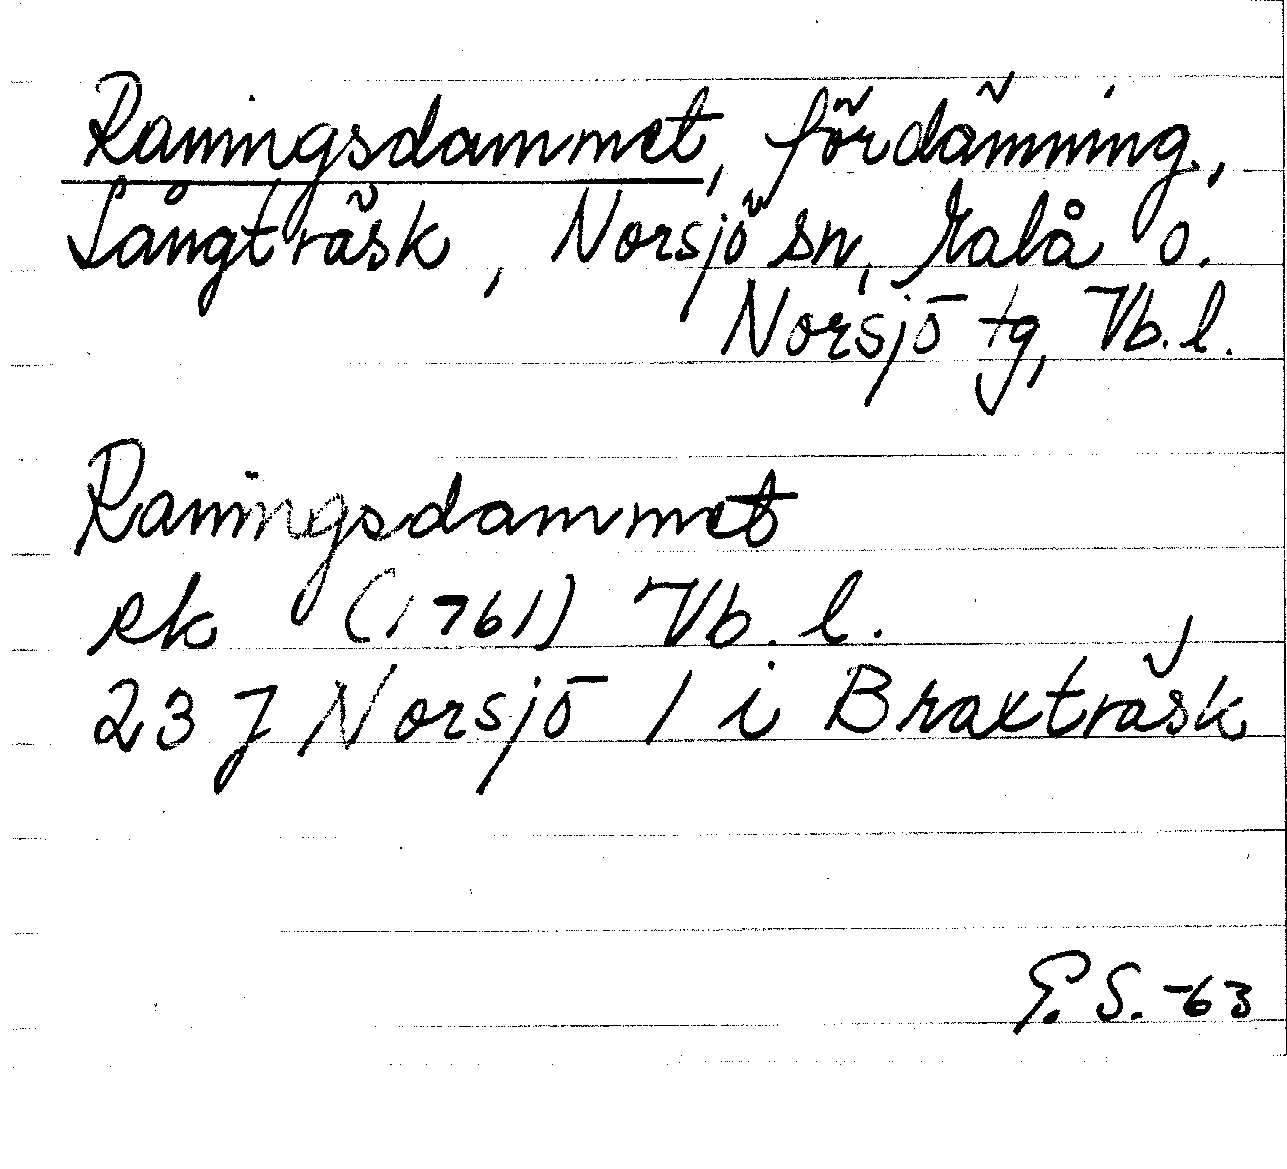 Raningsdammet, fördämning,
Långträsk, Norsjö sn, Malå o.
Norsjö tg, Vb.l.
Raningsdammet
ek (1761) Vb. l.
23 J Norsjö 1 i Braxträsk
G. S. -63